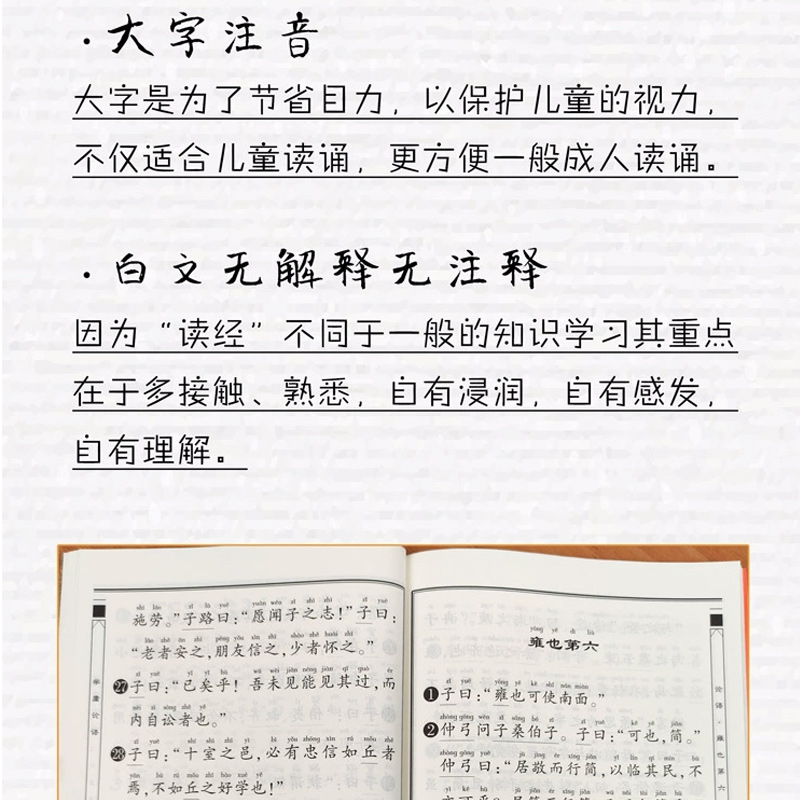 · 大字注音
大字是为了节省目力，以保护儿童的视力，
不仅适合儿童读诵，更方便一般成人读诵。
· 白文无解释无注释
因为“读经”不同于一般的知识学习其重点
在于多接触、熟悉，自有浸润，自有感发，
自有理解。
施劳。”子路曰：“愿闻子之志！”子曰：
“老者安之，朋友信之，少者怀之。”
㉗子曰：“已矣乎！吾未见能见其过，而
内自讼者也。”
㉘子曰：“十室之邑，必有忠信如丘者
焉，不如丘之好学也！”
yōng yě dì liù
雍也第六
❶子曰：“雍也可使南面。
❷仲弓问子桑伯子。子曰：“可也，简。”
仲弓曰：“居敬而行简，以临其民，不
论语
雍也第六